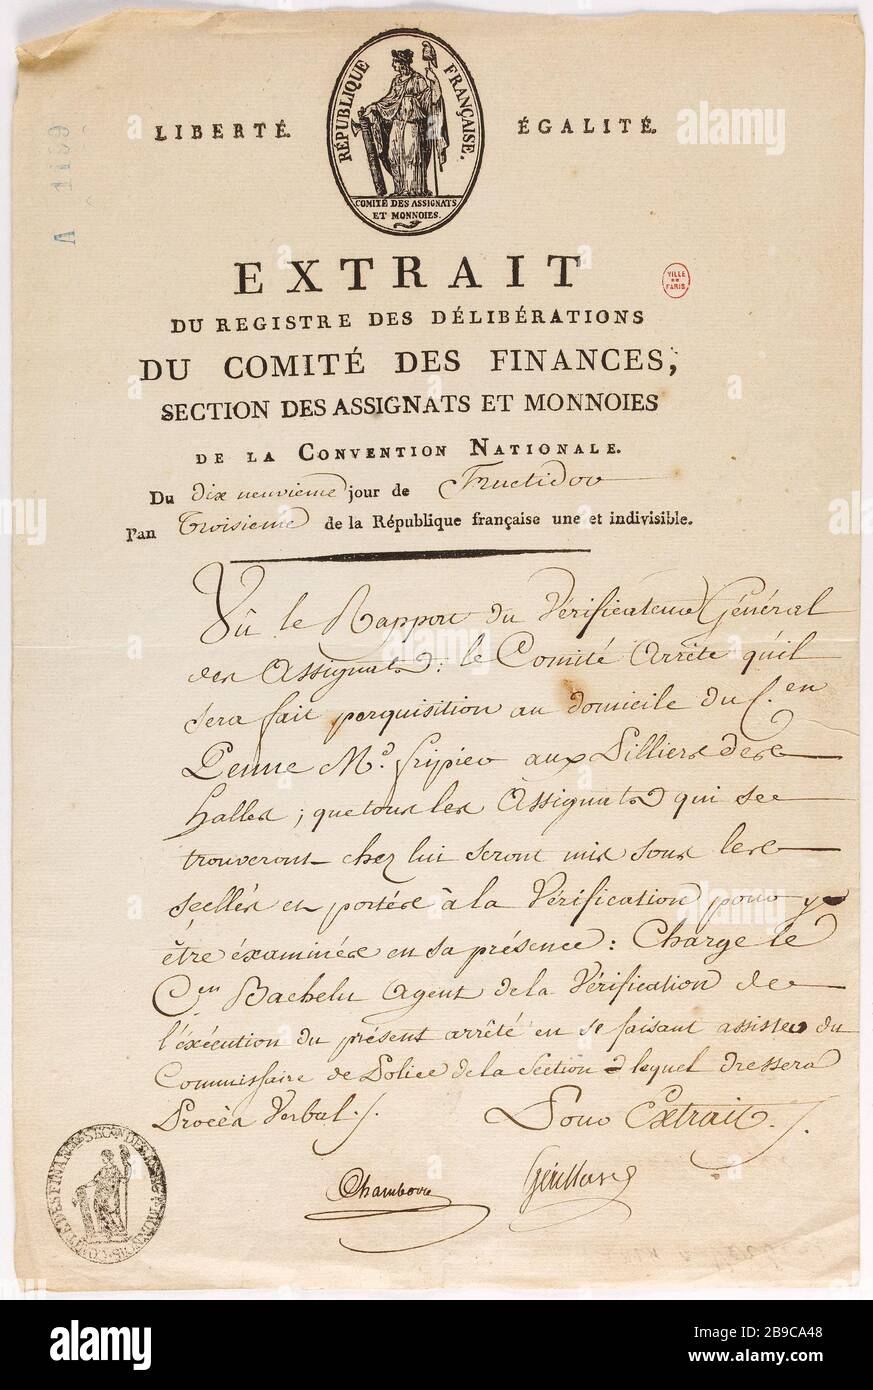 LIBERTÉ. ÉGALITÉ.
RÉPUBLIQUE FRANÇAISE.
COMITÉ DES ASSIGNATS
ET MONNOIES.
A 1159
EXTRAIT
VILLE
DE
PARIS
DU REGISTRE DES DÉLIBÉRATIONS
DU COMITÉ DES FINANCES,
SECTION DES ASSIGNATS ET MONNOIES
DE LA CONVENTION NATIONALE.
Du dix neuvieme jour de Fructidor
l'an Troisieme de la République française une et indivisible.
Vû le Rapport du Vérificateur Général
des Assignats: le Comité Arrête qu'il
sera fait perquisition au domicile du C.en
Penne Md. fripier aux Pilliers des
halles; que tous les Assignats qui se
trouveront chez lui seront mis sous les
scellés et portés à la Vérification pour y
être éxaminés en sa présence: Charge le
Cen Bachelu Agent de la Vérification de
l'éxécution du présent arrêté en se faisant assister du
Commissaire de Police de la Section lequel dressera
Procès Verbal./.
Pour Extrait./.
alamy
Image ID: 2B9CA48
www.alamy.com